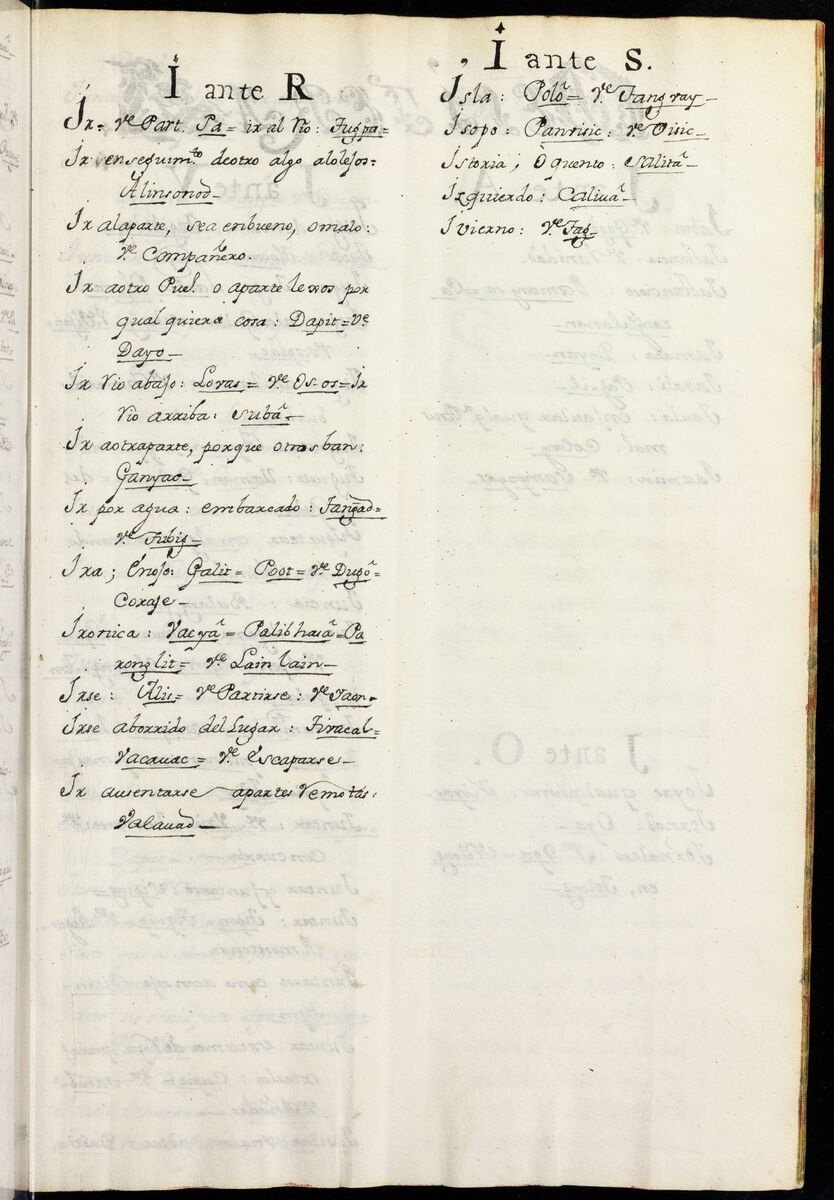 I ante R
Ir= Ve Part. Pa= ir al Rio: Tugpa=
Ir enseguimto deotro algo alolejos=
Alinsonod
Ir alaparte, sea enbueno, omalo:
Ve Compañero.
Ir aotro Puel. o aparte lexos por
qual quiera cosa: Dapit= Ve
Dayo
Ir Rio abajo: Loras= Ve Os-os= Ir
Rio arriba: Subâ
Ir aotraparte, porque otros ban:
Ganyao
Ir por agua: embarcado: Tangad=
Ve Tubig
Ira; Enojo: Galit= Poot= Ve Dugô=
Coraje
Ironica: Vaeyâ= Palibhasâ= Pa
ronglit= Ve Lain lain
Irse: Alis= Ve Partirse: Ve Taon
Irse aborrido del Lugar: Tiracal=
Vacauac= Ve Escaparse
Ir ausentarse apartes Remotas:
Valauad
I ante S.
Isla: Polô= Ve Tangray
Isopo: Panrisic: Ve Visic
Istoria; O quento: Salitâ
Izquierdo: Caliuâ
Ivierno: Ve Tag